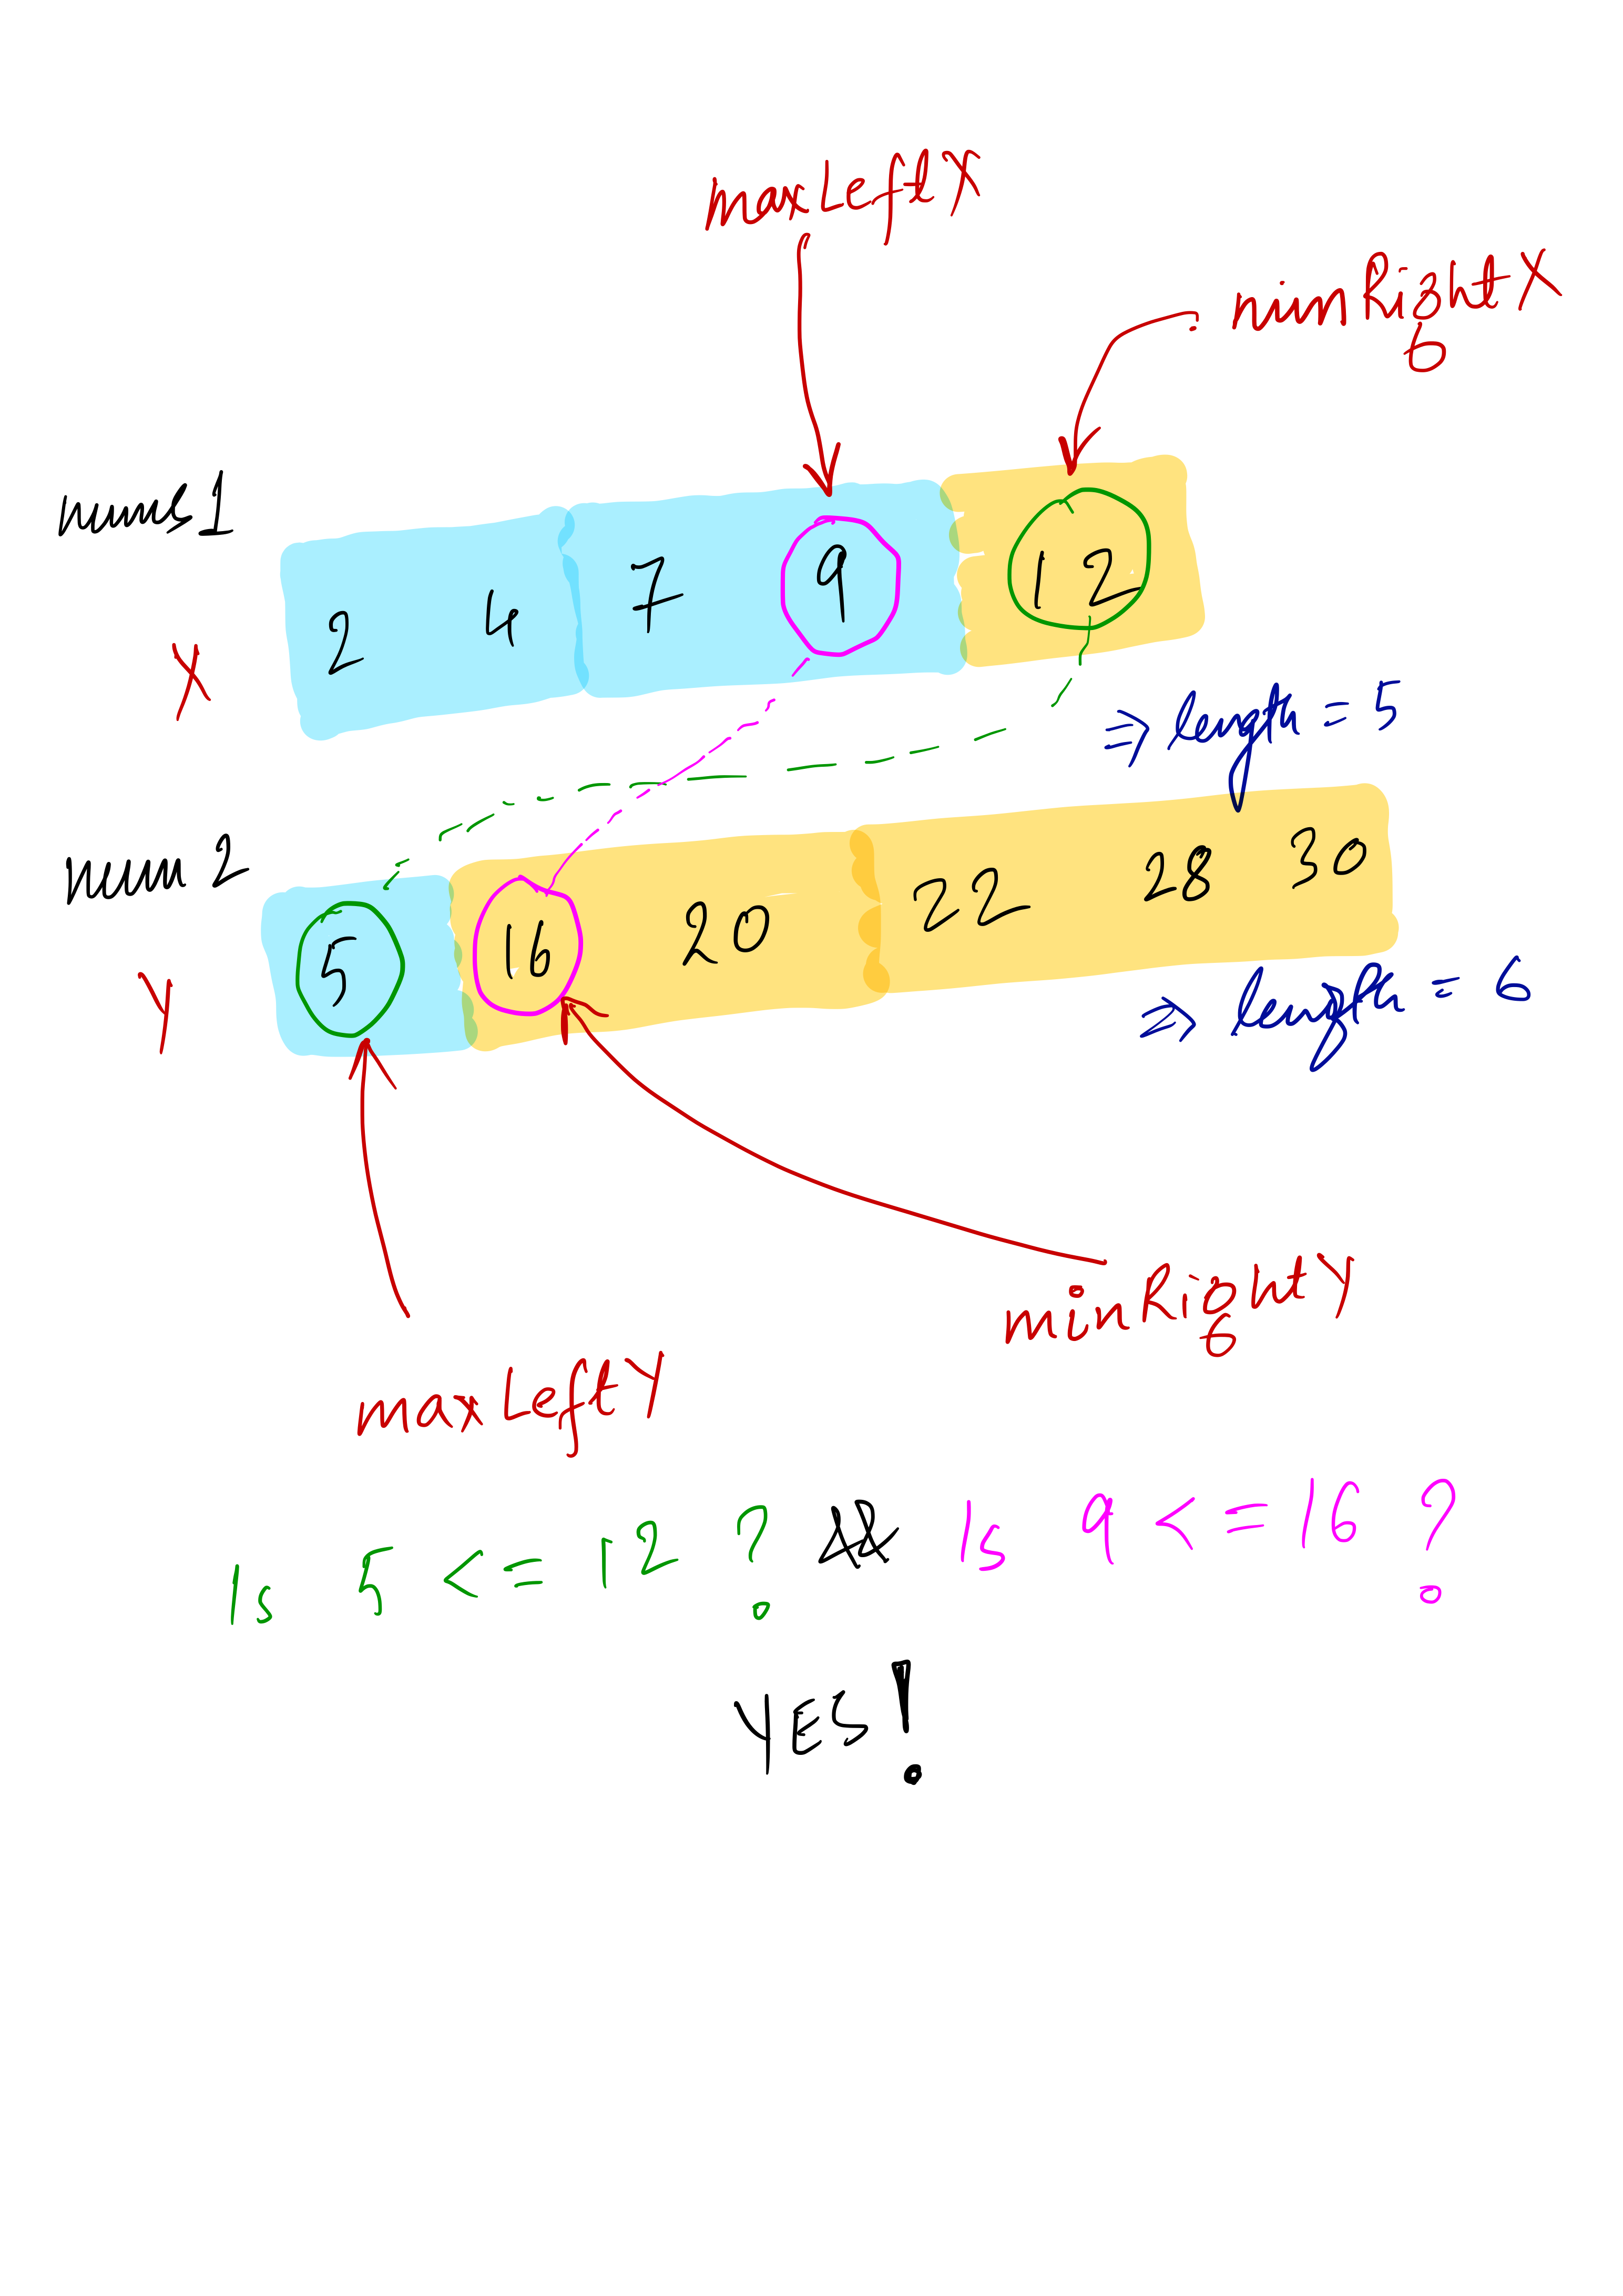 maxLeftX
minRightX
nums1
2 4 7 9 12
X
⇒ length = 5
num 2
5 16 20 22 28 30
Y
⇒ length = 6
minRightY
maxLeftY
Is 5 <= 12 ? && Is 9 <= 16 ?
YES!